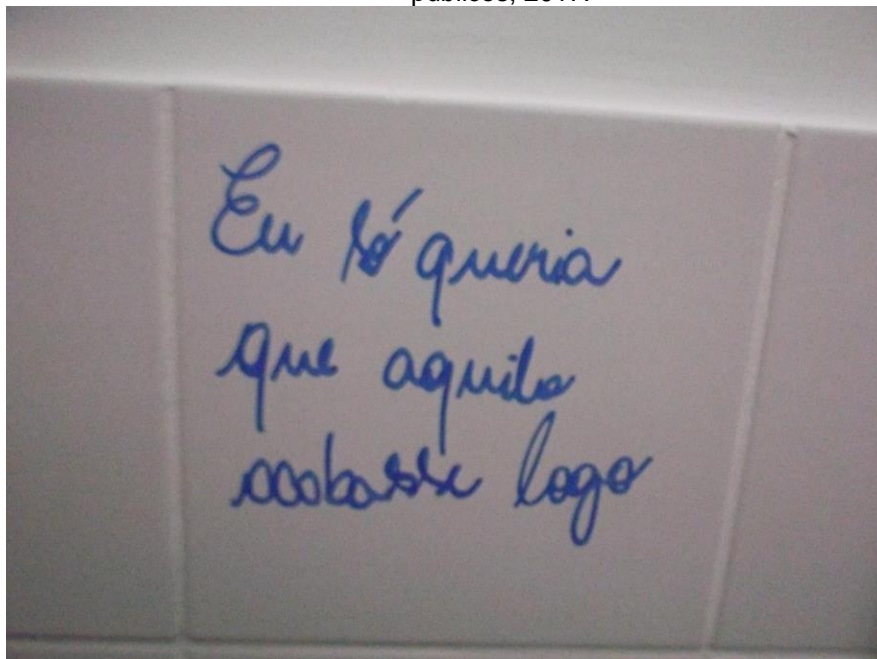 Eu só queria
que aquilo
acabasse logo